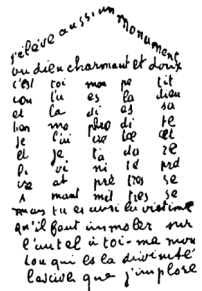 s'élève aussi un Monument
au dieu charmant et doux
c'est toi mon pe tit
con tu es la dieu
et la di es sa
lion ma phro di te
je
et je t'a do re
Di vi ni té pré
at prê tres se
A mant maî tres se
mais tu es aussi la victime
qu'il faut immoler sur
l'autel à toi-me mon
cou qui es la divinité
lascive que j'implore